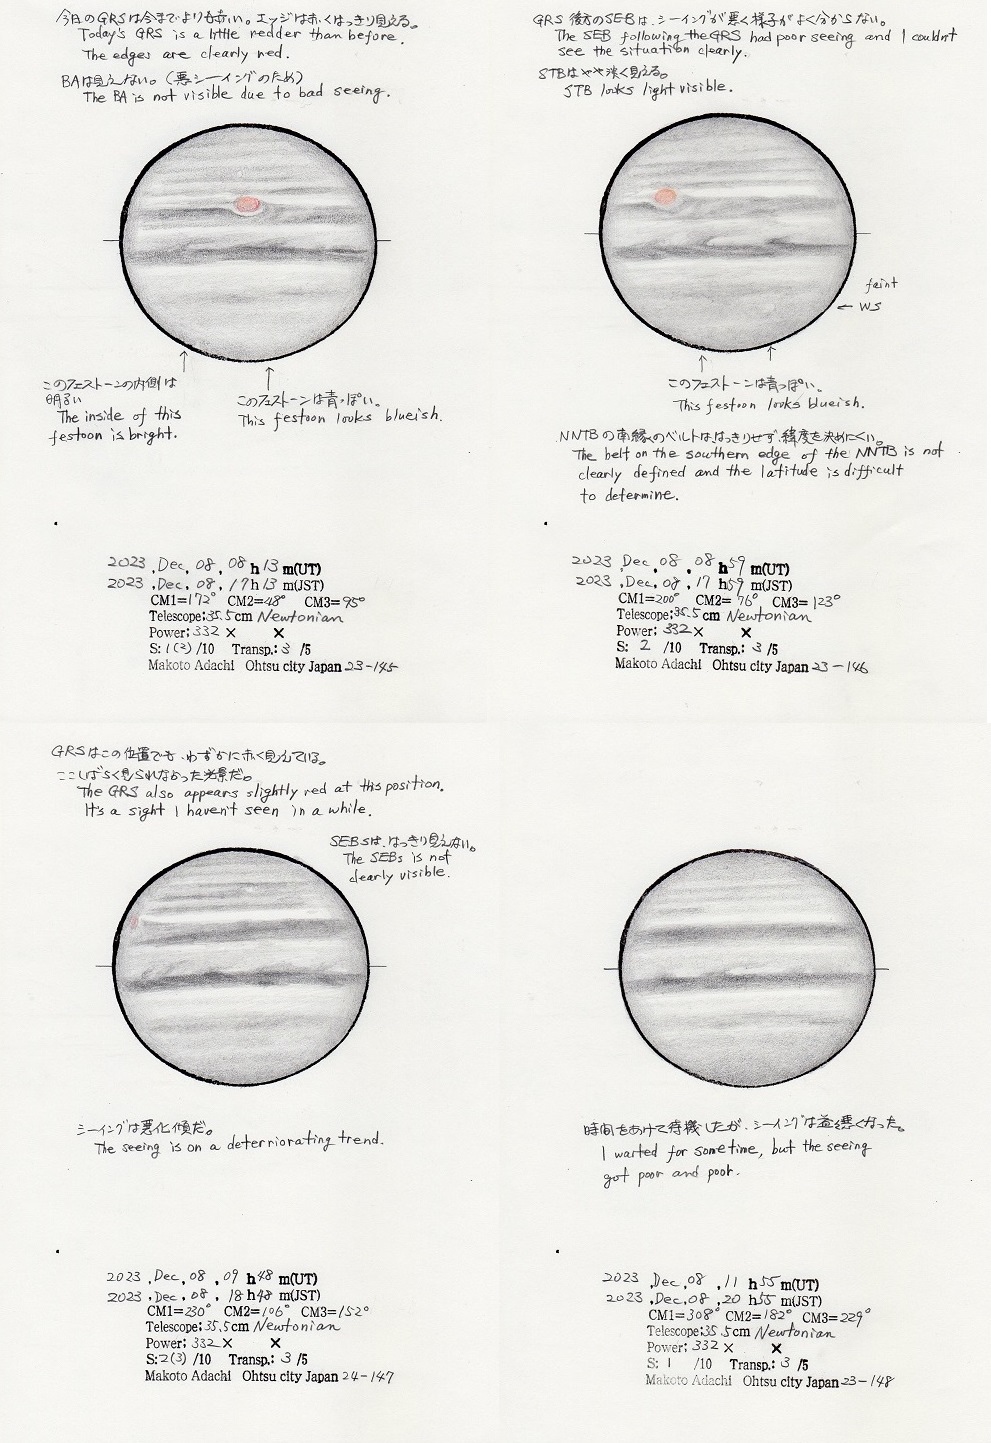 今日のGRSは今までよりも赤い。エッジは赤くはっきり見える。
Today's GRS is a little redder than before.
The edges are clearly red.
BAは見えない。(悪シーイングのため)
The BA is not visible due to bad seeing.
このフェストーンの内側は
明るい
The inside of this
festoon is bright.
このフェストーンは青っぽい。
This festoon looks blueish.
2023 ,Dec, 08 , 08 h 13 m(UT)
2023 ,Dec, 08, 17h 13 m(JST)
CM1=172° CM2=48° CM3=95°
Telescope:35.5cm Newtonian
Power: 332 × ×
S: 1(2) /10 Transp.: 3 /5
Makoto Adachi Ohtsu city Japan 23-145
GRS 後方のSEBは、シーイングが悪く様子がよく分からない。
The SEB following the GRS had poor seeing and I couldn't
see the situation clearly.
STBはやや淡く見える。
STB looks light visible.
faint
← WS
このフェストーンは青っぽい。
This festoon looks blueish.
NNTBの南縁のベルトははっきりせず、緯度を決めにくい。
The belt on the southern edge of the NNTB is not
clearly defined and the latitude is difficult
to determine.
2023 ,Dec, 08 , 08 h59 m(UT)
2023 ,Dec, 08, 17 h59 m(JST)
CM1=200° CM2= 76° CM3= 123°
Telescope:35.5cm Newtonian
Power: 332 × ×
S: 2 /10 Transp.: 3 /5
Makoto Adachi Ohtsu city Japan 23-146
GRSはこの位置でも、わずかに赤く見えている。
ここしばらく見られなかった光景だ。
The GRS also appears slightly red at this position.
It's a sight I haven't seen in a while.
SEBsは、はっきり見えない。
The SEBs is not
clearly visible.
シーイングは悪化傾だ。
The seeing is on a deterriorating trend.
2023 ,Dec, 08 , 09 h48 m(UT)
2023 ,Dec, 08, 18h48 m(JST)
CM1=230° CM2=106° CM3=152°
Telescope:35.5cm Newtonian
Power: 332 × ×
S:2(3) /10 Transp.: 3 /5
Makoto Adachi Ohtsu city Japan 24-147
時間をあけて待機したが、シーイングは益々悪くなった。
I waited for some time, but the seeing
got poor and poor.
2023 ,Dec, 08 , 11 h 55 m(UT)
2023 ,Dec, 08, 20 h55 m(JST)
CM1=308° CM2=182° CM3=229°
Telescope:35.5cm Newtonian
Power: 332 × ×
S: 1 /10 Transp.: 3 /5
Makoto Adachi Ohtsu city Japan 23-148